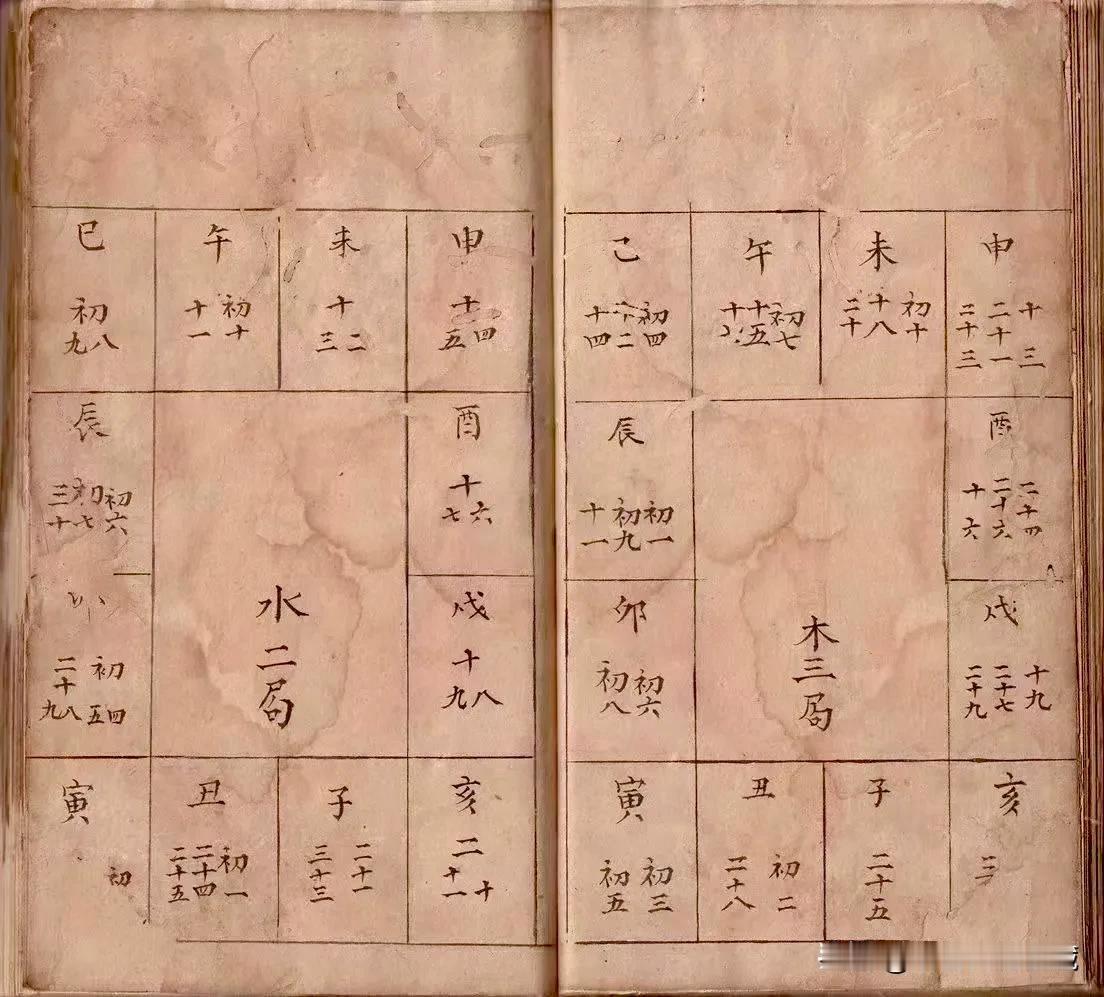 巳
初八九
午
初十
十一
未
十二三
申
十四五
辰
初六
初七
三十
酉
十六七
初四五
二十八九
水二局
戌
十八九
寅
初
丑
初一
二十四
二十五
子
二十一
三十三
亥
二十
十一
己
初四
十二
十四
午
初七
十五
十
未
初十
十八
二十
申
十三
二十一
二十三
辰
初一
初九
十一
酉
二十四
二十六
十六
卯
初六
初八
木三局
戌
十九
二十七
二十九
寅
初三
初五
丑
初二
二十八
子
二十五
亥